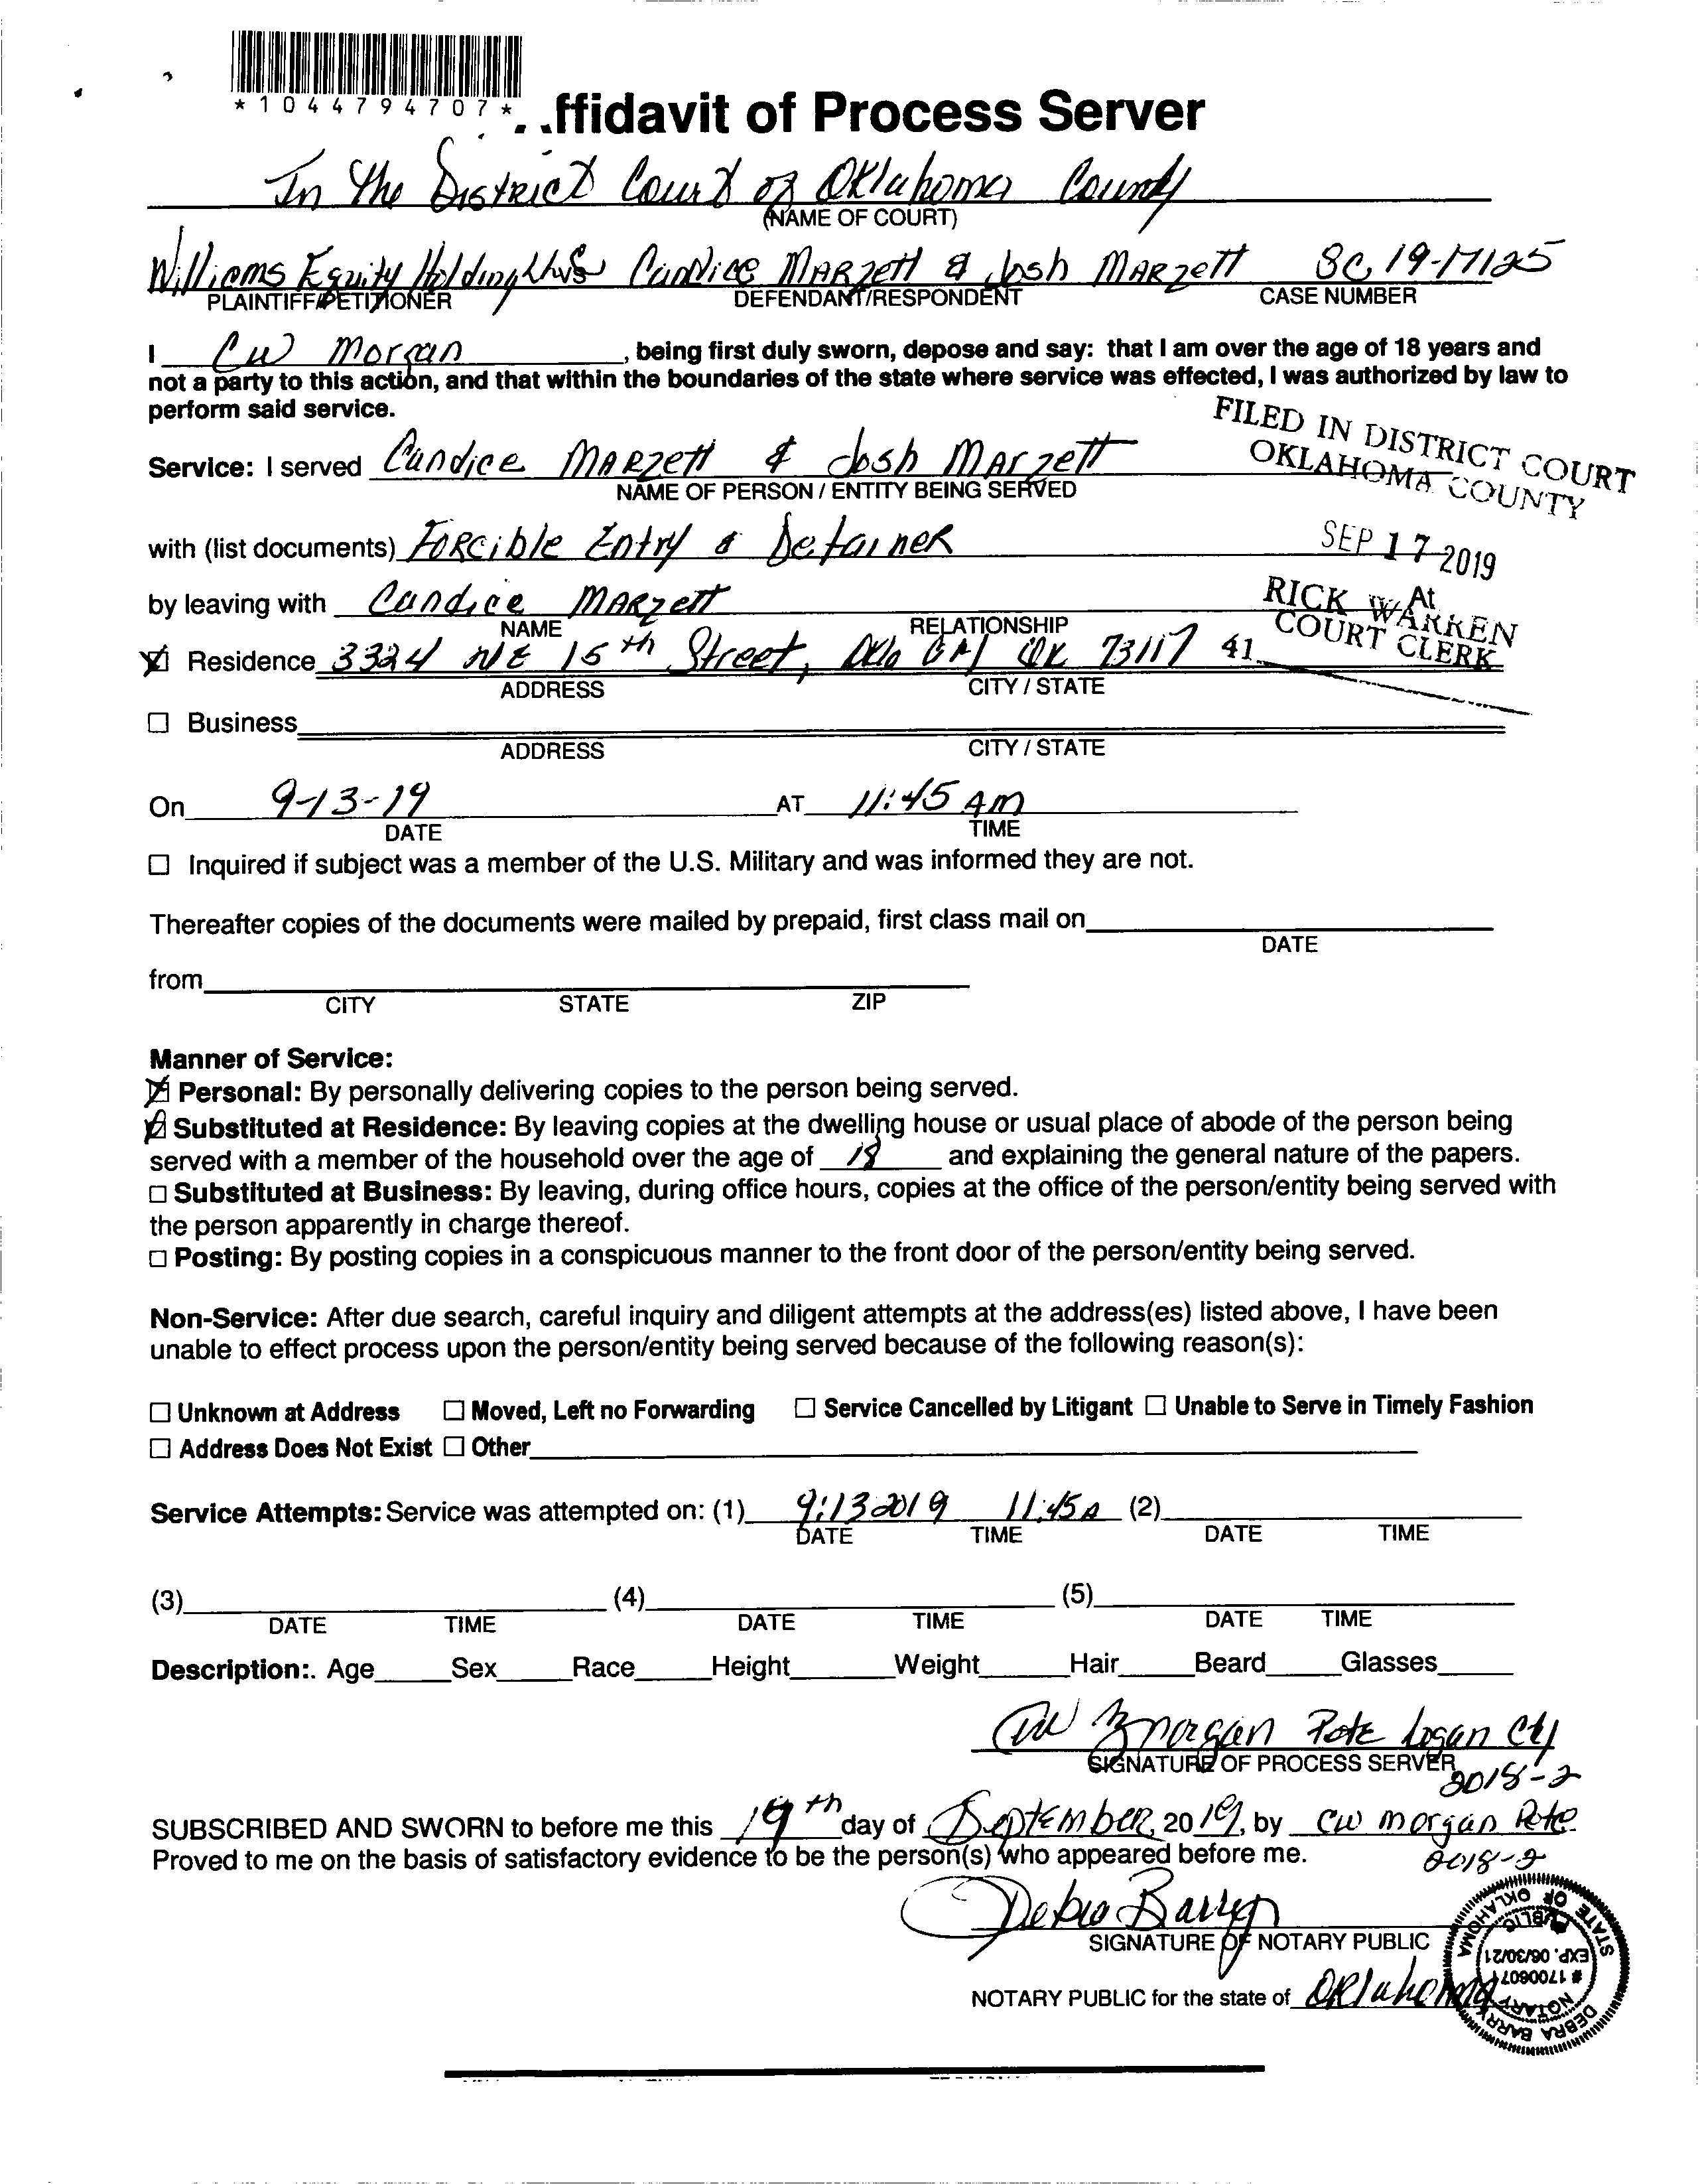 *1044794707*
ffidavit of Process Server
In The District Court of Oklahoma County
(NAME OF COURT)
Williams Equity Holding Candice Marzett & Josh Marzett SC 19-17125
PLAINTIFF/PETITIONER DEFENDANT/RESPONDENT CASE NUMBER
I CW Morgan, being first duly sworn, depose and say: that I am over the age of 18 years and
not a party to this action, and that within the boundaries of the state where service was effected, I was authorized by law to
perform said service.
FILED IN DISTRICT COURT
OKLAHOMA COUNTY
Service: I served Candice Marzett & Josh Marzett
NAME OF PERSON / ENTITY BEING SERVED
with (list documents) Forcible Entry & Detainer
SEP 17 2019
by leaving with Candice Marzett
NAME RELATIONSHIP
RICK WARREN
COURT CLERK
At
41
Residence 3324 NE 15th Street, Okla City OK 73117
ADDRESS CITY / STATE
Business
ADDRESS CITY / STATE
On 9-13-19 AT 11:45 AM
DATE TIME
Inquired if subject was a member of the U.S. Military and was informed they are not.
Thereafter copies of the documents were mailed by prepaid, first class mail on
DATE
from
CITY STATE ZIP
Manner of Service:
Personal: By personally delivering copies to the person being served.
Substituted at Residence: By leaving copies at the dwelling house or usual place of abode of the person being
served with a member of the household over the age of 18 and explaining the general nature of the papers.
Substituted at Business: By leaving, during office hours, copies at the office of the person/entity being served with
the person apparently in charge thereof.
Posting: By posting copies in a conspicuous manner to the front door of the person/entity being served.
Non-Service: After due search, careful inquiry and diligent attempts at the address(es) listed above, I have been
unable to effect process upon the person/entity being served because of the following reason(s):
Unknown at Address Moved, Left no Forwarding Service Cancelled by Litigant Unable to Serve in Timely Fashion
Address Does Not Exist Other
Service Attempts: Service was attempted on: (1) 9:13 2019 11:45 A (2)
DATE TIME DATE TIME
(3) (4) (5)
DATE TIME DATE TIME DATE TIME
Description:. Age Sex Race Height Weight Hair Beard Glasses
CW Morgan Logan Cty
SIGNATURE OF PROCESS SERVER
2018-2
SUBSCRIBED AND SWORN to before me this 19th day of September, 2019, by CW Morgan
Proved to me on the basis of satisfactory evidence to be the person(s) who appeared before me.
2018-2
Debra Barry
SIGNATURE OF NOTARY PUBLIC
NOTARY PUBLIC for the state of Oklahoma
DEBRA BARRY
NOTARY PUBLIC
# 17006071
EXP. 06/30/21
STATE OF OKLAHOMA